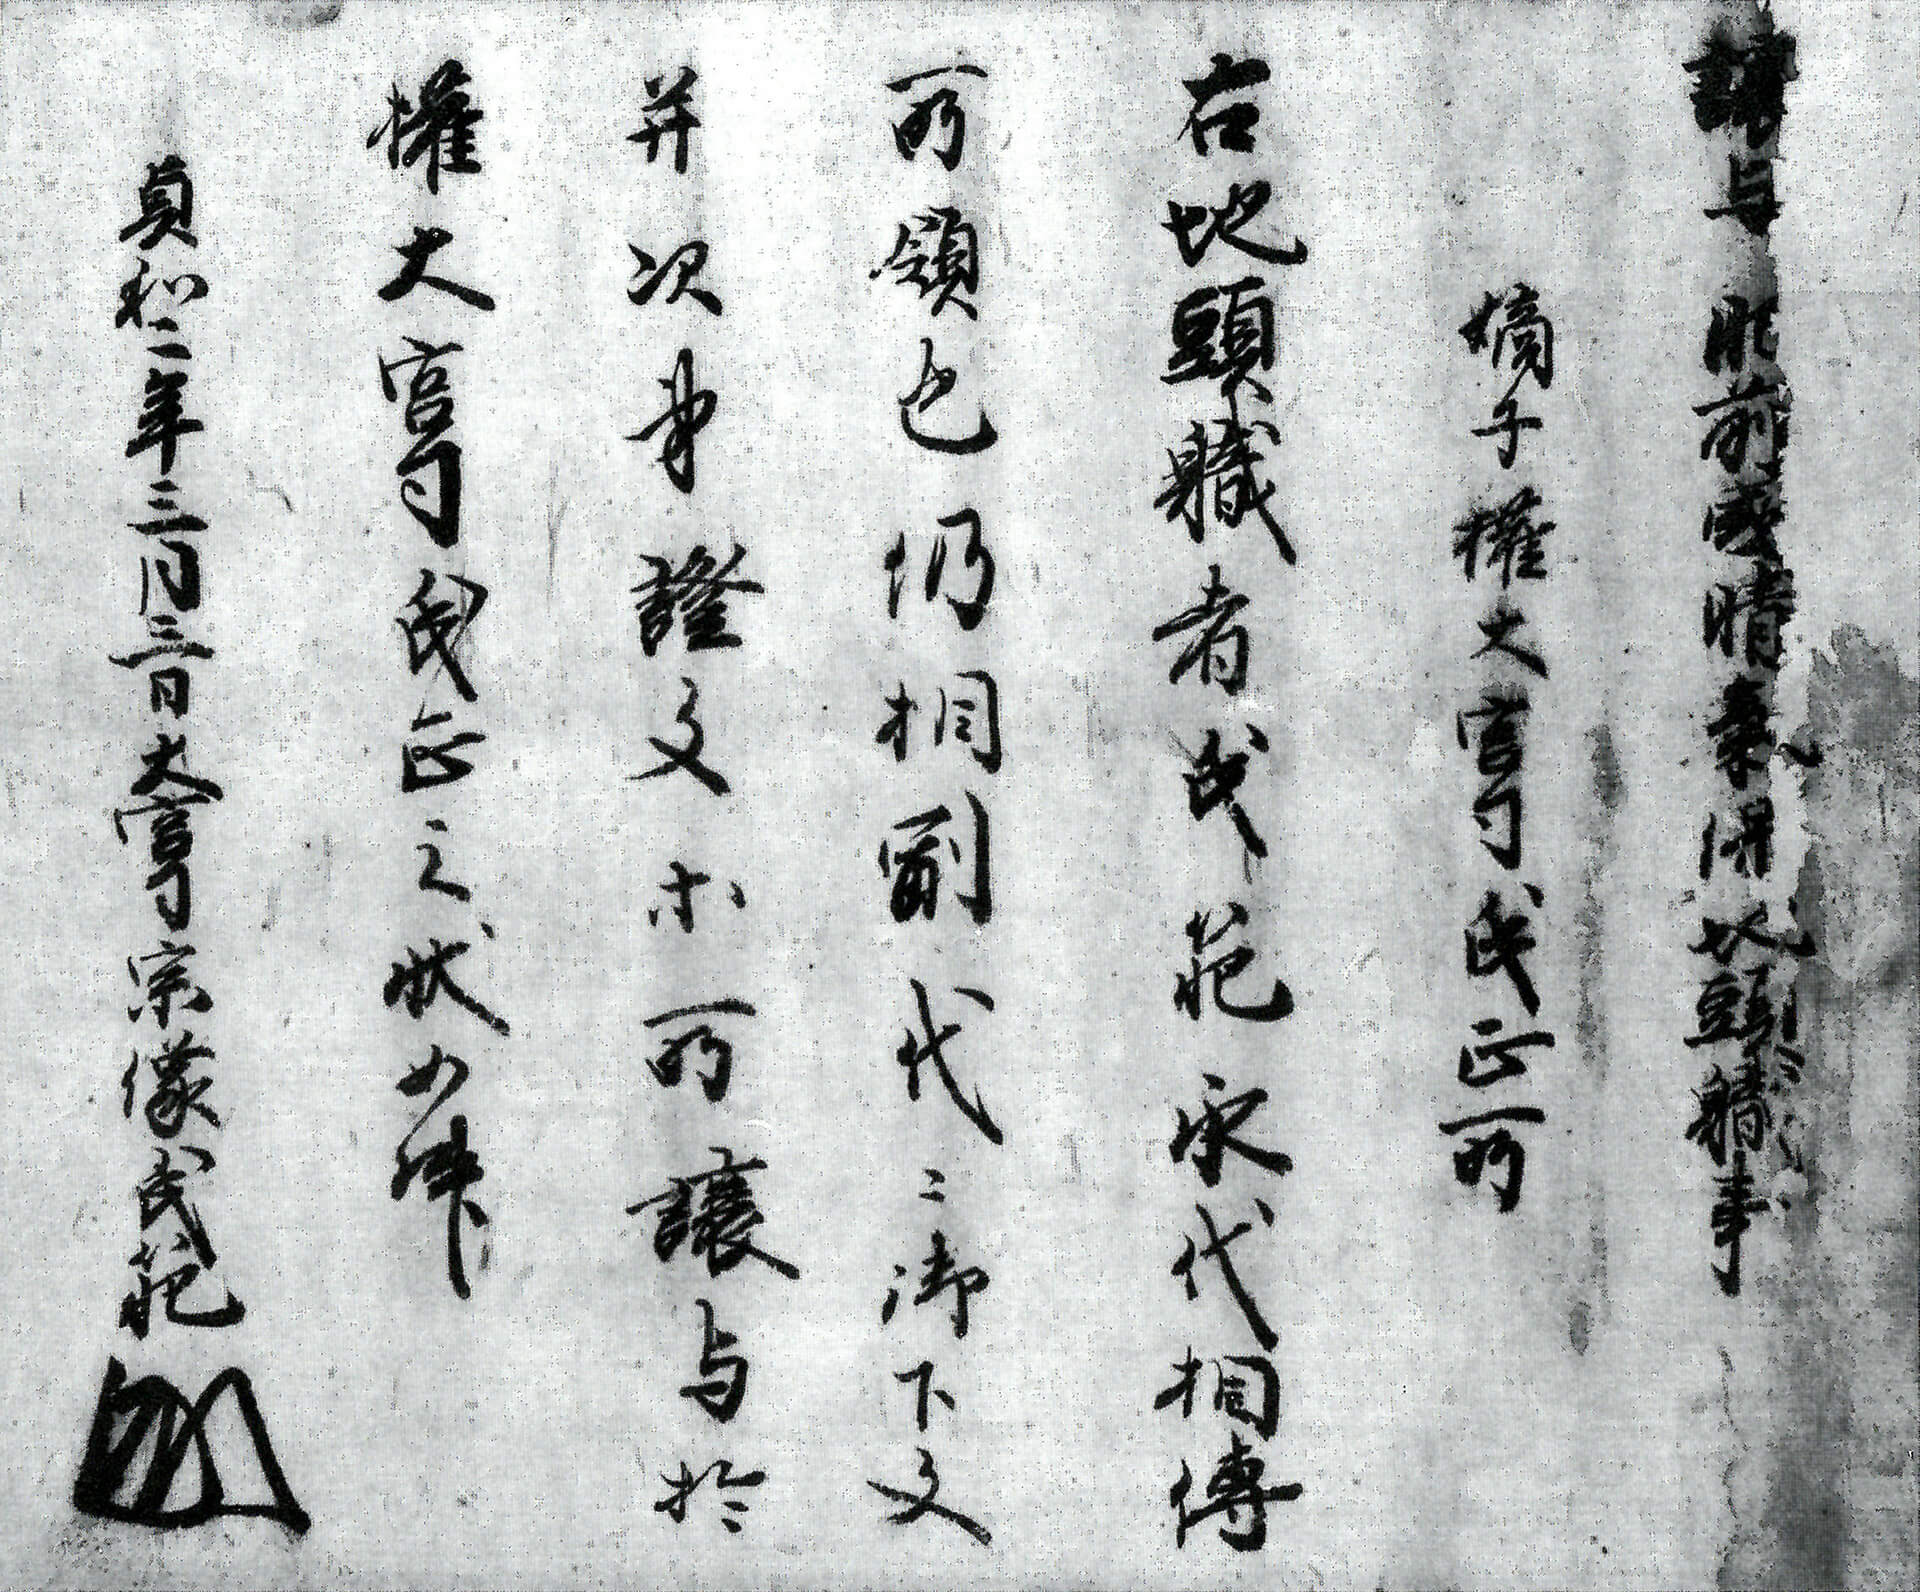 譲与 肥前國晴氣保地頭職事
嫡子権大宮司氏正所
右地頭職者氏範永代相傳
所領也仍相副代々御下文
并次第證文等所譲与於
権大宮司氏正之状如件
貞和二年三月三日大宮司宗像氏範